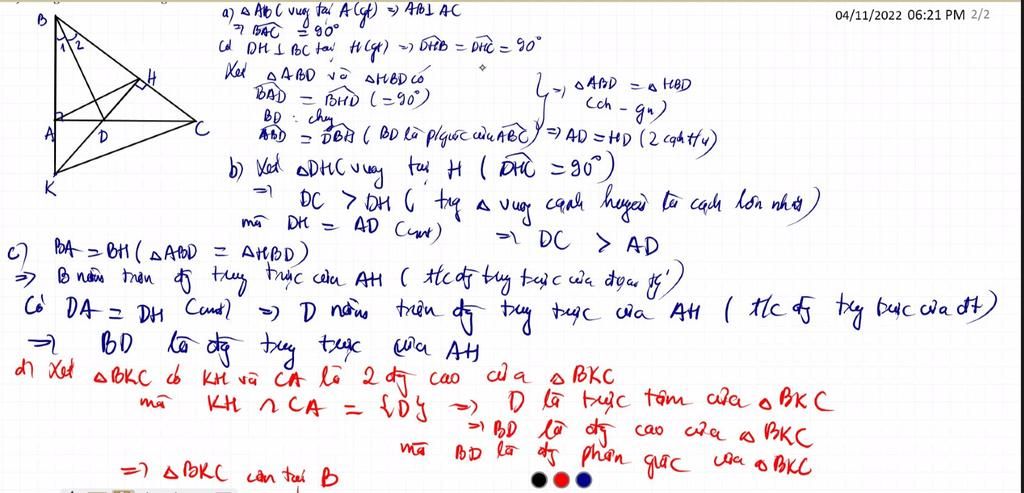 04/11/2022 06:21 PM 2/2
B
1 2
H
A
D
C
K
a) △ABC vuông tại A (gt) => AB⊥AC
=> BAC = 90°
Có DH ⊥ BC tại H (gt) => DHB = DHC = 90°
Xét △ABD và △HBD có
BAD = BHD (= 90°)
BD: chung
ABD = DBH (BD là p/giác của ABC)
=> △ABD = △HBD
(ch - gn)
=> AD = HD (2 cạnh t/ư)
b) Xét △DHC vuông tại H (DHC = 90°)
=> DC > DH (trg △ vuông cạnh huyền là cạnh lớn nhất)
mà DH = AD (cmt) => DC > AD
c) BA = BH (△ABD = △HBD)
=> B nằm trên đg trung trực của AH (t/c đg trung trực của đoạn tg)
Có DA = DH (cmt) => D nằm trên đg trung trực của AH (t/c đg trung trực của đt)
=> BD là đg trung trực của AH
d) Xét △BKC có KH và CA là 2 đg cao của △BKC
mà KH ∩ CA = {D} => D là trực tâm của △BKC
=> BD là đg cao của △BKC
mà BD là đg phân giác của △BKC
=> △BKC cân tại B